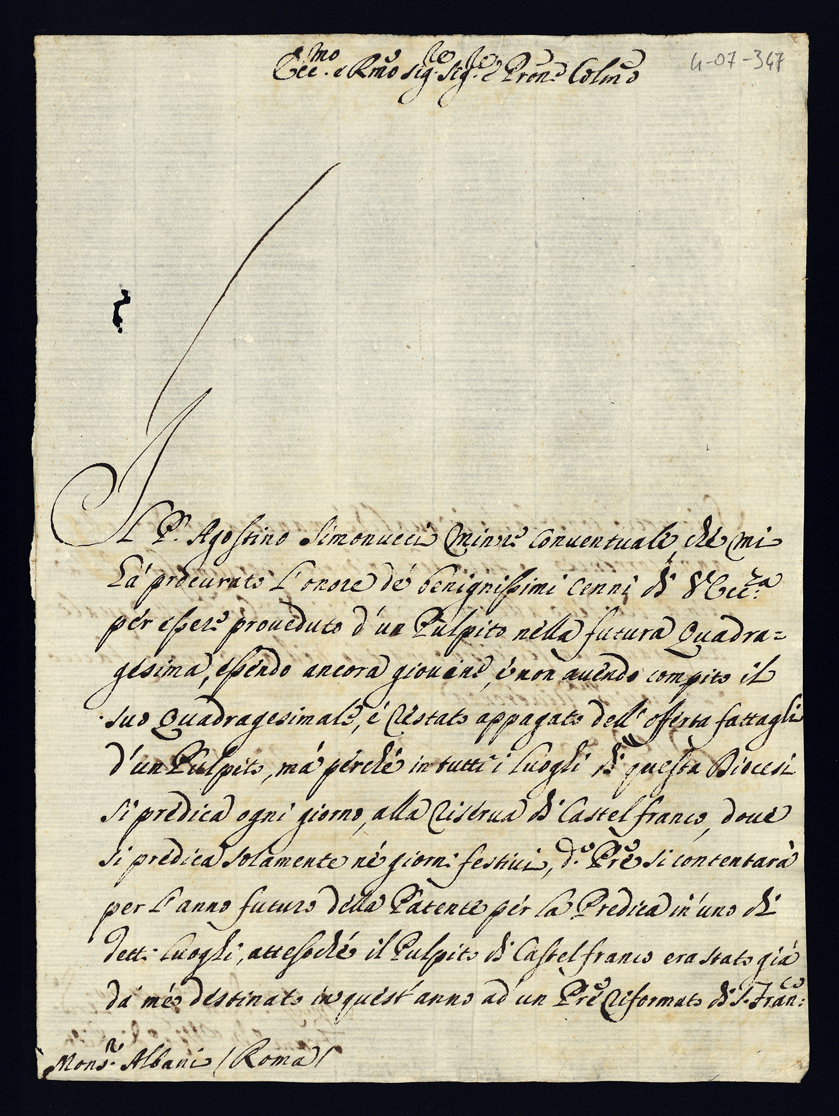 Ecc.mo e Rmo Sig.re Sig.re e Pron.e Colmo
4-07-347
Il P.re Agostino Simonucci Minre Conventuale, che mi
hà procurato l'onore de' benignissimi cenni di V. Ecc.za
per essere proveduto d'un Pulpito nella futura Quadra=
gesima, essendo ancora giovane, e non avendo compito il
suo Quadragesimale, è restato appagato dell'offerta fattagli
d'un Pulpito, mà perché in tutti i Luoghi di questa Diocesi
si predica ogni giorno, alla riserva di Castelfranco, dove
si predica solamente nè giorni festivi, d.o Pre si contentarà
per l'anno futuro della Patente per la Predica in uno di
detti Luoghi, attesoché il Pulpito di Castelfranco era stato già
da mè destinato in quest'anno ad un Pre Riformato di S. Franco:
Mons.r Albani (Roma)